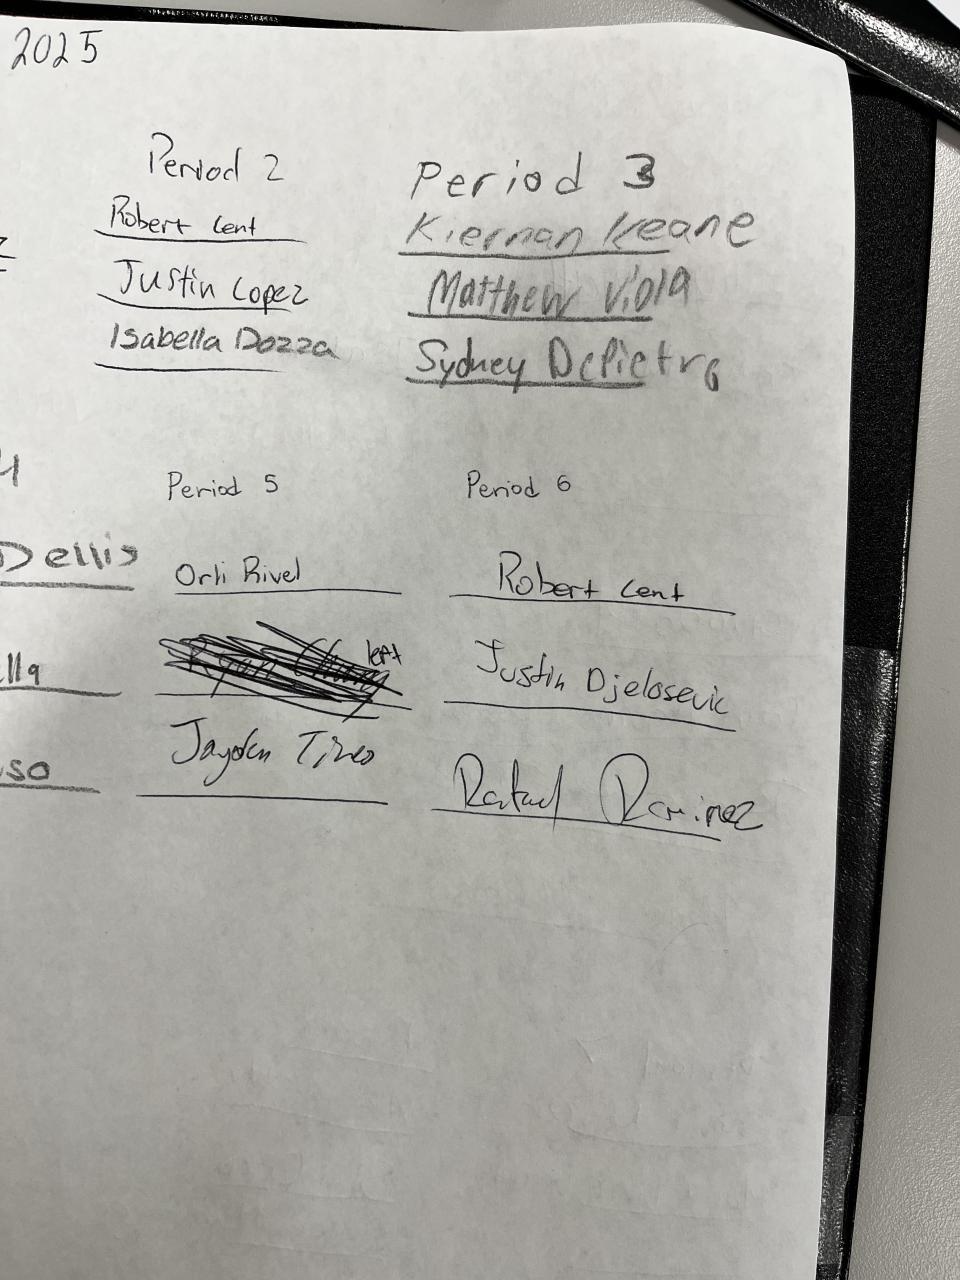 2025
Period 2
Robert Cent
Justin Lopez
Isabella Dozza
Period 3
Kiernan Keane
Matthew Viola
Sydney DePietro
Dellis
lla
uso
Period 5
Orli Rivel
Ryan Chang left
Jayden Tineo
Period 6
Robert Cent
Justin Djelosevic
Rafael Ramirez